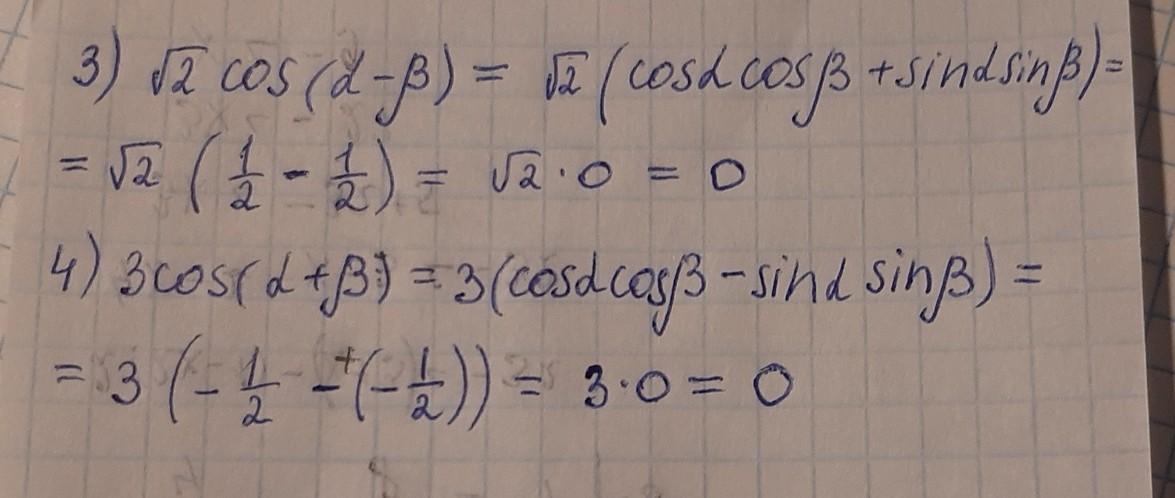 3) √2 cos(α-β) = √2 (cosα cosβ + sinα sinβ) =
= √2 (1/2 - 1/2) = √2 · 0 = 0
4) 3cos(α+β) = 3(cosα cosβ - sinα sinβ) =
= 3 (-1/2 -⁺(-1/2)) = 3·0 = 0